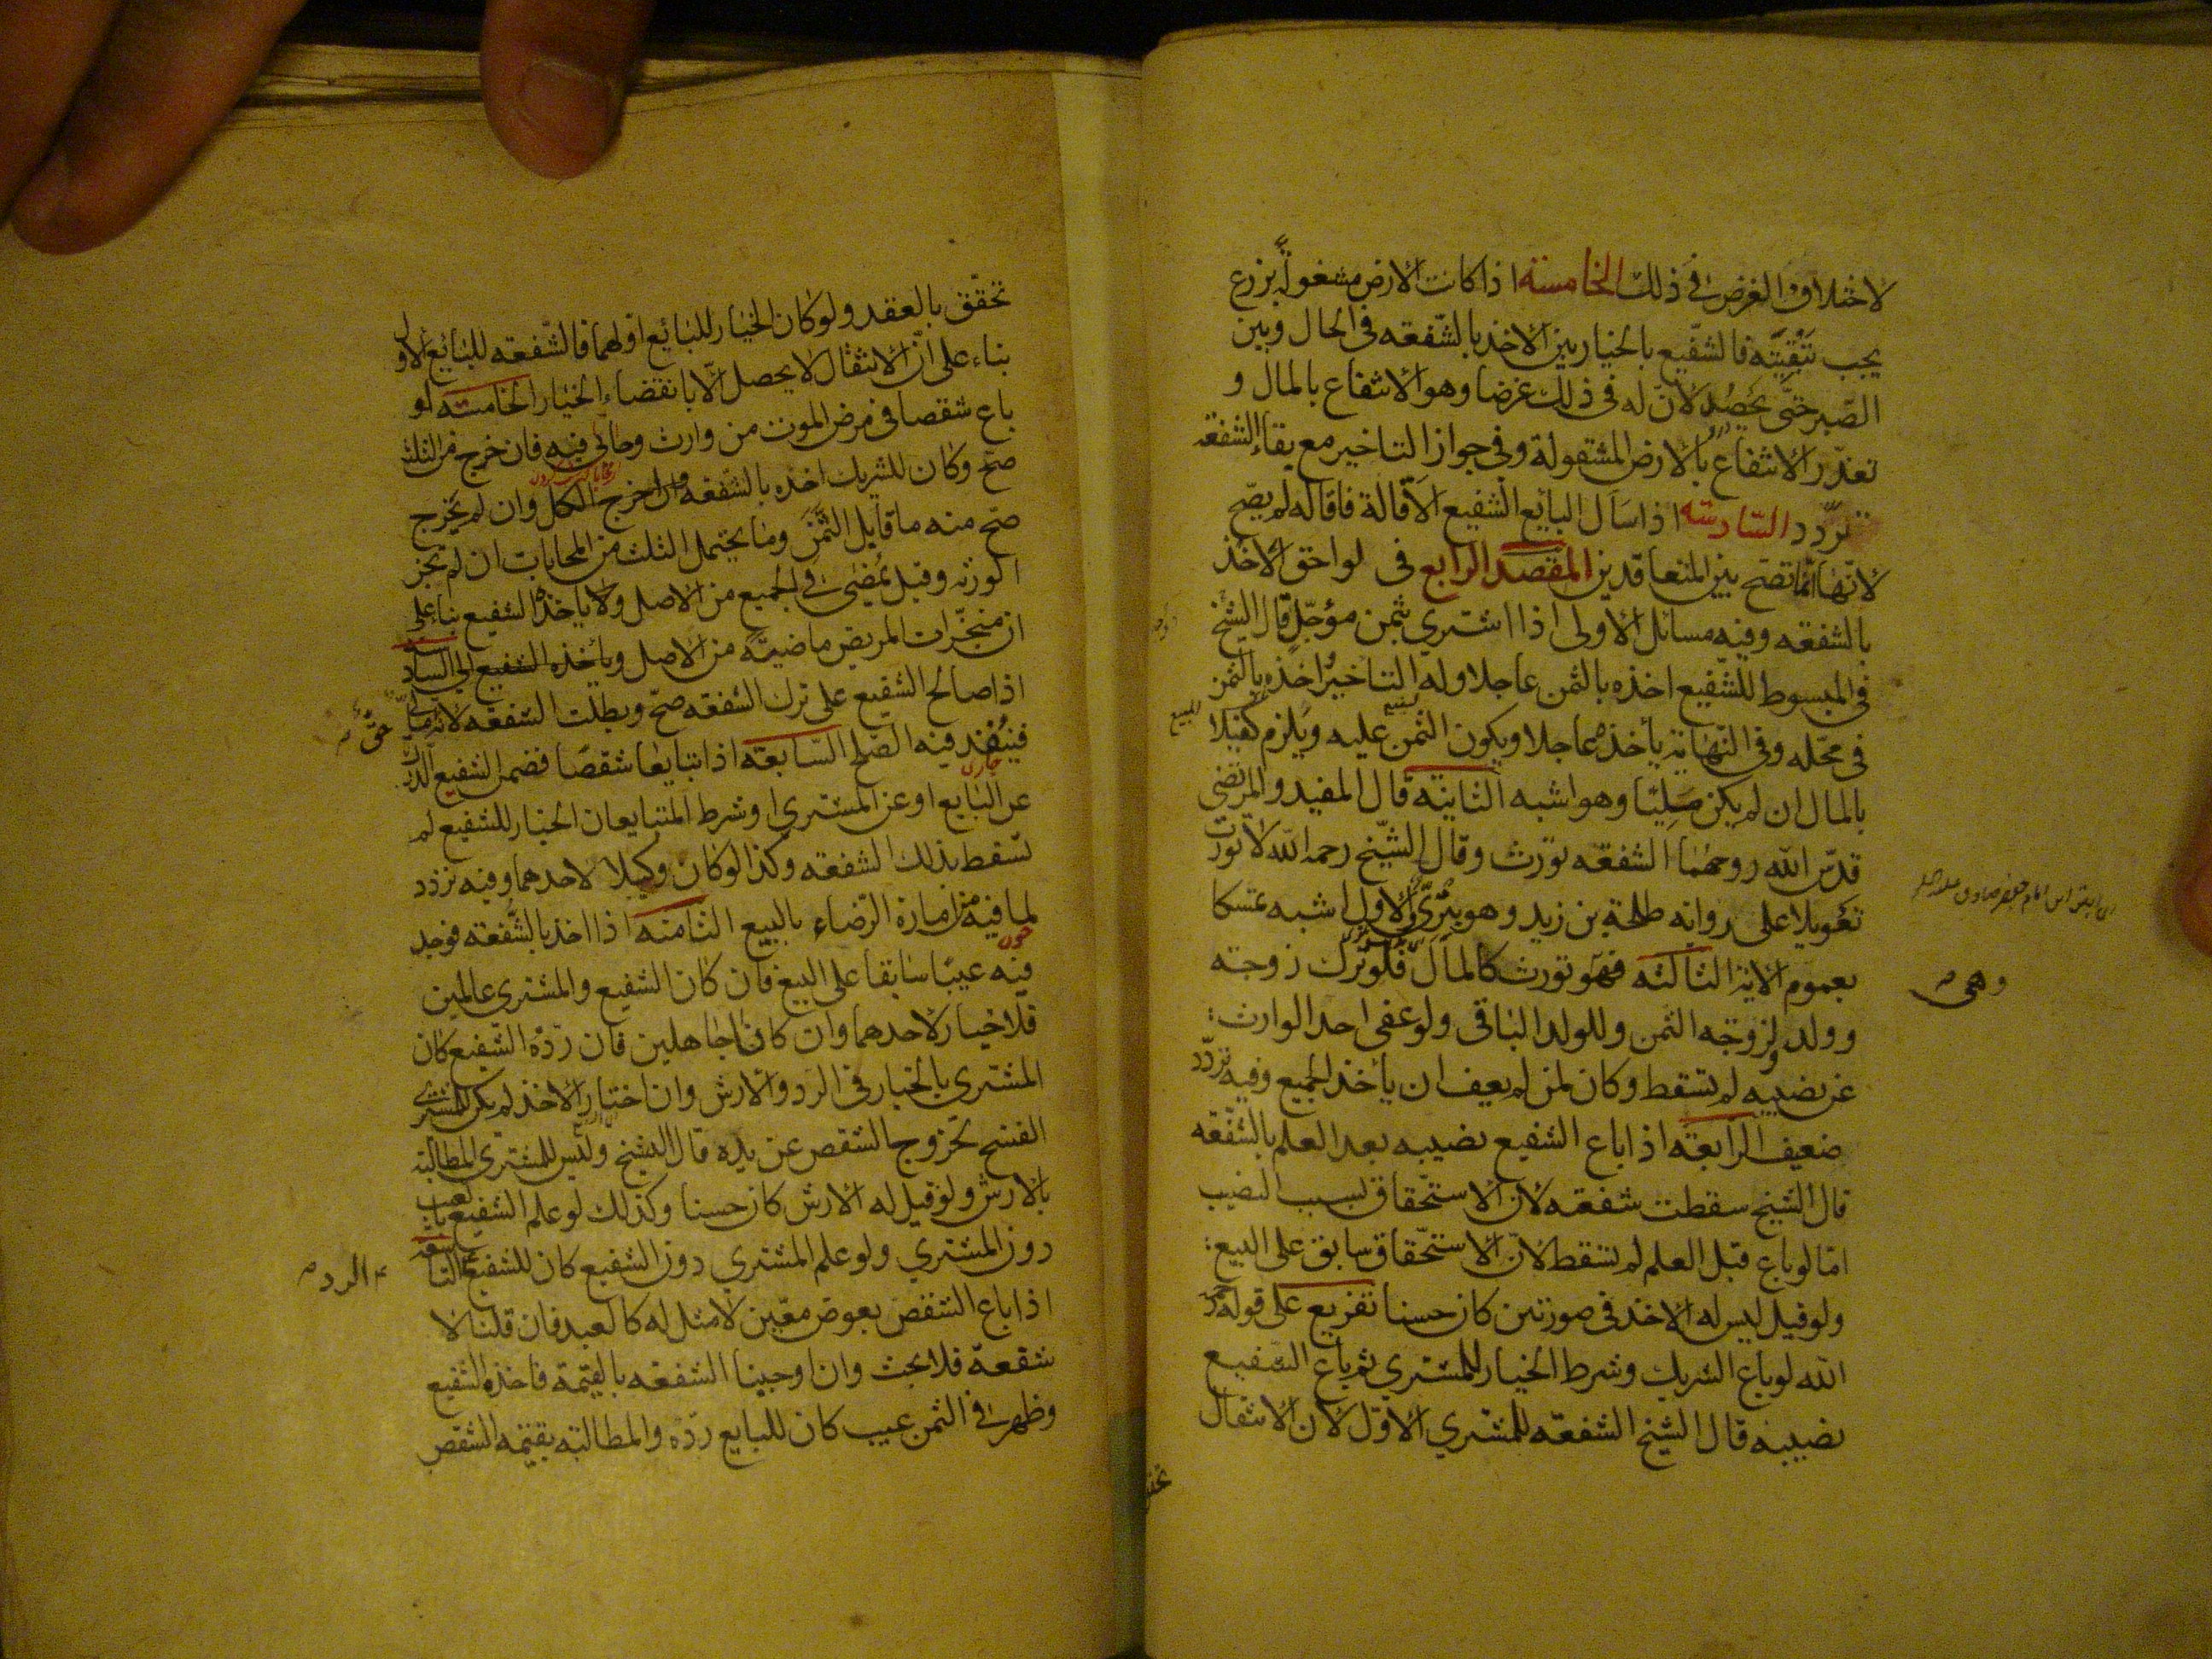 لاختلاف الغرض فى ذلك الخامسة اذا كانت الارض مشغولة بزرع
يجب تبقيته فالشفيع بالخيار بين الاخذ بالشفعه فى الحال وبين
الصبر حتى يحصد لان له فى ذلك غرضا وهو الانتفاع بالمال و
تعذر الانتفاع بالارض المشغولة وفى جواز التاخير مع بقاء الشفعة
تردد السادسه اذا سال البايع الشفيع الاقالة فاقاله لم يصح
لانها انما تصح بين المتعاقدين المقصد الرابع فى لواحق الاخذ
بالشفعه وفيه مسائل الاولى اذا اشترى بثمن مؤجل قال الشيخ
فى المبسوط للشفيع اخذه بالثمن عاجلا وله التاخير واخذه بالثمن
فى محله وفى النهاية يأخذه عاجلا ويكون الثمن عليه ويلزم كفيلا
بالمال ان لم يكن مليا وهو اشبه الثانيه قال المفيد والمرتضى
قدس الله روحهما الشفعه تورث وقال الشيخ رحمه الله لا تورث
تعويلا على روايه طلحة بن زيد وهو بترى والاول اشبه تمسكا
بعموم الاية الثالثه فهو تورث كالمال فلو ترك زوجته
وولد ولزوجه الثمن وللولد الباقى ولو عفى احد الوارث
عن نصيبه لم تسقط وكان لمن لم يعف ان يأخذ الجميع وفيه تردد
ضعيف الرابعه اذا باع الشفيع نصيبه بعد العلم بالشفعه
قال الشيخ سقطت شفعه لان الاستحقاق بسبب النصيب
امّا لو باع قبل العلم لم تسقط لان الاستحقاق سابق على البيع
ولو قيل ليس له الاخذ فى صورتين كان حسنا تفريع على قوله رحمه
الله لو باع الشريك وشرط الخيار للمشترى ثم باع الشفيع
نصيبه قال الشيخ الشفعه للمشترى الاوّل لان الانتقال
وهى
تحقق بالعقد ولو كان الخيار للبائع او لهما فالشفعه للبائع الاول
بناء على انّ الانتقال لا يحصل الّا بانقضاء الخيار الخامسه لو
باع شقصا فى مرض الموت من وارث وحابى فيه فان خرج من الثلث
صح وكان للشريك اخذه بالشفعه وان لم يخرج
صح منه ما قابل الثمن وما يحتمل الثلث من المحابات ان لم تجز
الورثه وقيل يمضى فى الجميع من الاصل ولا ياخذه الشفيع بناء على
ان منجزات المريض ماضية من الاصل ويأخذه الشفيع
اذا صالح الشفيع على ترك الشفعه صح وبطلت الشفعه لانه
حق
فينفذ فيه الصلح السابعه اذا تبايعا شقصا فضمن الشفيع الدرك
عن البايع او عن المشترى او شرط المتبايعان الخيار للشفيع لم
تسقط بذلك الشفعه وكذا لو كان وكيلا لاحدهما وفيه تردد
لما فيه من امارة الرضاء بالبيع الثامنه اذا اخذ بالشفعه فوجد
فيه عيبا سابقا على البيع فان كان الشفيع والمشترى عالمين
فلا خيار لاحدهما وان كانا جاهلين فان ردّه الشفيع كان
المشترى بالخيار فى الرد والارش وان اختار الاخذ لم يكن للمشترى
الفسخ لخروج الشقص عن يده قال الشيخ وليس للمشترى المطالبة
بالارش ولو قيل له الارش كان حسنا وكذلك لو علم الشفيع بالعيب
دون المشترى ولو علم المشترى دون الشفيع كان للشفيع التاسعه
الرد
اذا باع الشقص بعوض معين لا مثل له كالعبد فان قلنا لا
شفعة فلا بحث وان اوجبنا الشفعه بالقيمة فاخذه الشفيع
وظهر فى الثمن عيب كان للبايع ردّه والمطالبه بقيمه الشقص